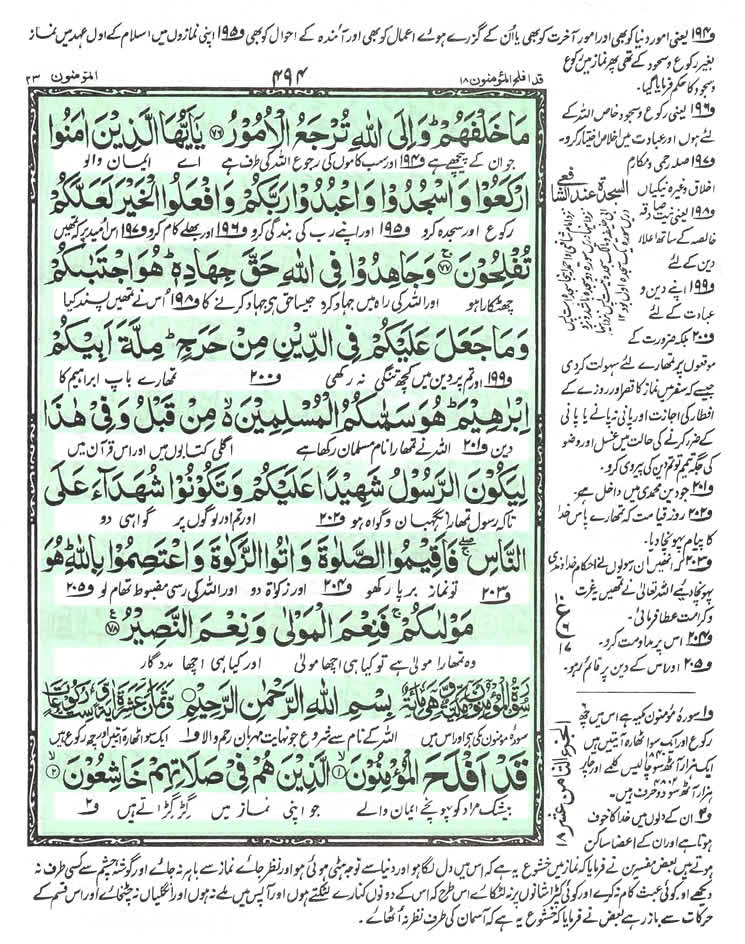 و۱۹۴ یعنی امور دنیا کو بھی اور امور آخرت کو بھی یا ان کے گزرے ہوئے اعمال کو بھی اور آئندہ کے احوال کو بھی و۱۹۵ اپنی نمازوں میں اسلام کے اول عہد میں نماز
بغیر رکوع و سجود کے تھی پھر نماز میں رکوع
و سجود کا حکم فرمایا گیا۔
المؤمنون ۲۳
۴۹۴
قد افلح المؤمنون ۱۸
مَا خَلْفَهُمْ ۗ وَاِلَى اللّٰهِ تُرْجَعُ الْاُمُوْرُ ۝۷۶ يٰۤاَيُّهَا الَّذِيْنَ اٰمَنُوا
جو ان کے پیچھے ہے و۱۹۴ اور سب کاموں کی رجوع اللہ کی طرف ہے اے ایمان والو
ارْكَعُوْا وَاسْجُدُوْا وَاعْبُدُوْا رَبَّكُمْ وَافْعَلُوا الْخَيْرَ لَعَلَّكُمْ
رکوع اور سجدہ کرو و۱۹۵ اور اپنے رب کی بندگی کرو و۱۹۶ اور بھلے کام کرو و۱۹۷ اس امید پر کہ تمہیں
تُفْلِحُوْنَ ۝۷۷ وَجَاهِدُوْا فِى اللّٰهِ حَقَّ جِهَادِهٖ ۗ هُوَ اجْتَبٰىكُمْ
چھٹکارا ہو اور اللہ کی راہ میں جہاد کرو جیسا حق ہے جہاد کرنے کا و۱۹۸ اس نے تمہیں پسند کیا
وَمَا جَعَلَ عَلَيْكُمْ فِى الدِّيْنِ مِنْ حَرَجٍ ۗ مِلَّةَ اَبِيْكُمْ
و۱۹۹ اور تم پر دین میں کچھ تنگی نہ رکھی و۲۰۰ تمہارے باپ ابراہیم کا
اِبْرٰهِيْمَ ۗ هُوَ سَمّٰىكُمُ الْمُسْلِمِيْنَ ۙ مِنْ قَبْلُ وَفِىْ هٰذَا
دین و۲۰۱ اللہ نے تمہارا نام مسلمان رکھا ہے اگلی کتابوں میں اور اس قرآن میں
لِيَكُوْنَ الرَّسُوْلُ شَهِيْدًا عَلَيْكُمْ وَتَكُوْنُوْا شُهَدَآءَ عَلَى
تاکہ رسول تمہارا نگہبان و گواہ ہو و۲۰۲ اور تم اور لوگوں پر گواہی دو
النَّاسِ ۖ فَاَقِيْمُوا الصَّلٰوةَ وَاٰتُوا الزَّكٰوةَ وَاعْتَصِمُوْا بِاللّٰهِ ۗ هُوَ
و۲۰۳ تو نماز برپا رکھو و۲۰۴ اور زکوٰۃ دو اور اللہ کی رسی مضبوط تھام لو و۲۰۵
مَوْلٰىكُمْ ۚ فَنِعْمَ الْمَوْلٰى وَنِعْمَ النَّصِيْرُ ۝۷۸
وہ تمہارا مولیٰ ہے تو کیا ہی اچھا مولیٰ اور کیا ہی اچھا مددگار
بِسْمِ اللّٰهِ الرَّحْمٰنِ الرَّحِيْمِ
سورۂ مؤمنون مکی ہے اور اس میں اللہ کے نام سے شروع جو نہایت مہربان رحم والا و۱ ایک سو اٹھارہ آیتیں اور چھ رکوع ہیں
قَدْ اَفْلَحَ الْمُؤْمِنُوْنَ ۝۱ الَّذِيْنَ هُمْ فِىْ صَلَاتِهِمْ خَاشِعُوْنَ ۝۲
بیشک مراد کو پہونچے ایمان والے جو اپنی نماز میں گڑگڑاتے ہیں و۲
السجدة عند الشافعی
و۱۹۶ یعنی رکوع و سجود خاص اللہ کے
لئے ہوں اور عبادت میں اخلاص اختیار کرو۔
و۱۹۷ صلہ رحمی و مکارم
اخلاق وغیرہ نیکیاں
و۱۹۸ یعنی نیت صادقہ
خالصہ کے ساتھ اعلاء
دین کے لئے
و۱۹۹ اپنے دین و
عبادت کے لئے
و۲۰۰ بلکہ ضرورت کے
موقعوں پر تمہارے لئے سہولت کر دی
جیسے کہ سفر میں نماز کا قصر اور روزے کے
افطار کی اجازت اور پانی نہ پانے یا پانی
کے ضرر کرنے کی حالت میں غسل اور وضو
کی جگہ تیمم تو تم دین کی پیروی کرو۔
و۲۰۱ جو دین محمدی میں داخل ہے۔
و۲۰۲ روز قیامت کہ تمہارے پاس خدا
کا پیام پہونچا دیا۔
و۲۰۳ کہ انھیں ان رسولوں نے احکام خداوندی
پہونچا دیئے اللہ تعالیٰ نے تمہیں یہ عزت
و کرامت عطا فرمائی۔
و۲۰۴ اس پر مداومت کرو۔
و۲۰۵ اور اس کے دین پر قائم رہو۔
ع
۱۷
الجزء الثامن عشر ۱۸
و۱ سورۂ مؤمنون مکیہ ہے اس میں چھ
رکوع اور ایک سو اٹھارہ آیتیں ہیں
ایک ہزار آٹھ سو چالیس کلمے اور چار
ہزار آٹھ سو دو حرف ہیں۔
و۲ ان کے دلوں میں خدا کا خوف
ہوتا ہے اور ان کے اعضا ساکن
ہوتے ہیں بعض مفسرین نے فرمایا کہ نماز میں خشوع یہ ہے کہ اس میں دل لگا ہو اور دنیا سے توجہ ہٹی ہوئی ہو اور نظر جائے نماز سے باہر نہ جائے اور گوشۂ چشم سے کسی طرف نہ
دیکھے اور کوئی عبث کام نہ کرے اور کوئی کپڑا شانوں پر نہ لٹکائے اس طرح کہ اس کے دونوں کنارے لٹکتے ہوں اور آپس میں ملے نہ ہوں اور انگلیاں نہ چٹخائے اور اس قسم کے
حرکات سے باز رہے بعض نے فرمایا کہ خشوع یہ ہے کہ آسمان کی طرف نظر نہ اٹھائے۔